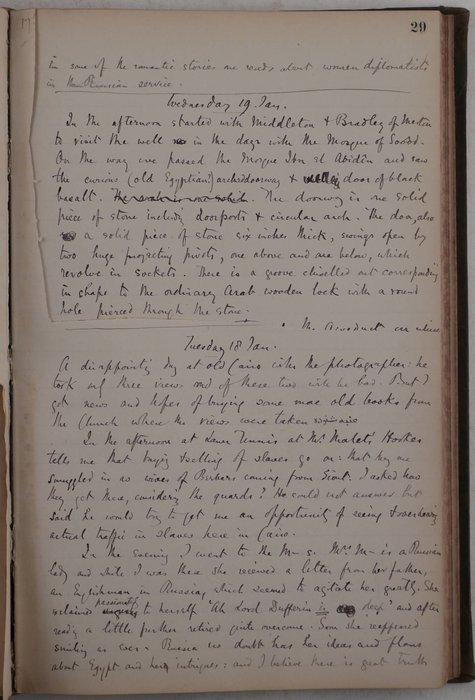 29
in some of the romantic stories one reads about women diplomatists
in the Russian service.
Wednesday 19 Jan.
In the afternoon started with Middleton & Bradley of
to visit the well in the days with the Mosque of
On the way we passed the Mosque Ibn el Abidin and saw
the curious (old Egyptian) doorway & door of black
basalt. The doorway is one solid
piece of stone including doorposts & circular arch. The door, also
a solid piece of stone six inches thick, swings open by
two huge projecting pivots, one above and one below, which
revolve in sockets. There is a groove chiselled out corresponding
in shape to the ordinary Arab wooden lock with a round
hole pierced through the stone.
Tuesday 18 Jan.
A disappointing day at old Cairo with the photographer: he
took only three views and of these two will be bad. But I
got news and hopes of buying some more old books from
the Church where the views were taken
In the afternoon at Lawn Tennis at Malets, Hooker
tells me that buying & selling of slaves go on: that they are
smuggled in as wives of Berbers coming from Siout. I asked how
they got there, considering the guards? He could not answer but
said he would try to get me an opportunity of seeing & overhearing
actual traffic in slaves here in Cairo.
In the evening I went to the M–s. Mrs M– is a Russian
lady and while I was there she received a letter from her father,
an Englishman in Russia, which seemed to agitate her greatly. She
exclaimed passionately to herself 'Ah Lord Dufferin is deep' and after
reading a little further retired quite overcome. Soon she reappeared
smiling as ever. Russia no doubt has her ideas and plans
about Egypt and here intrigues: and I believe there is great truth